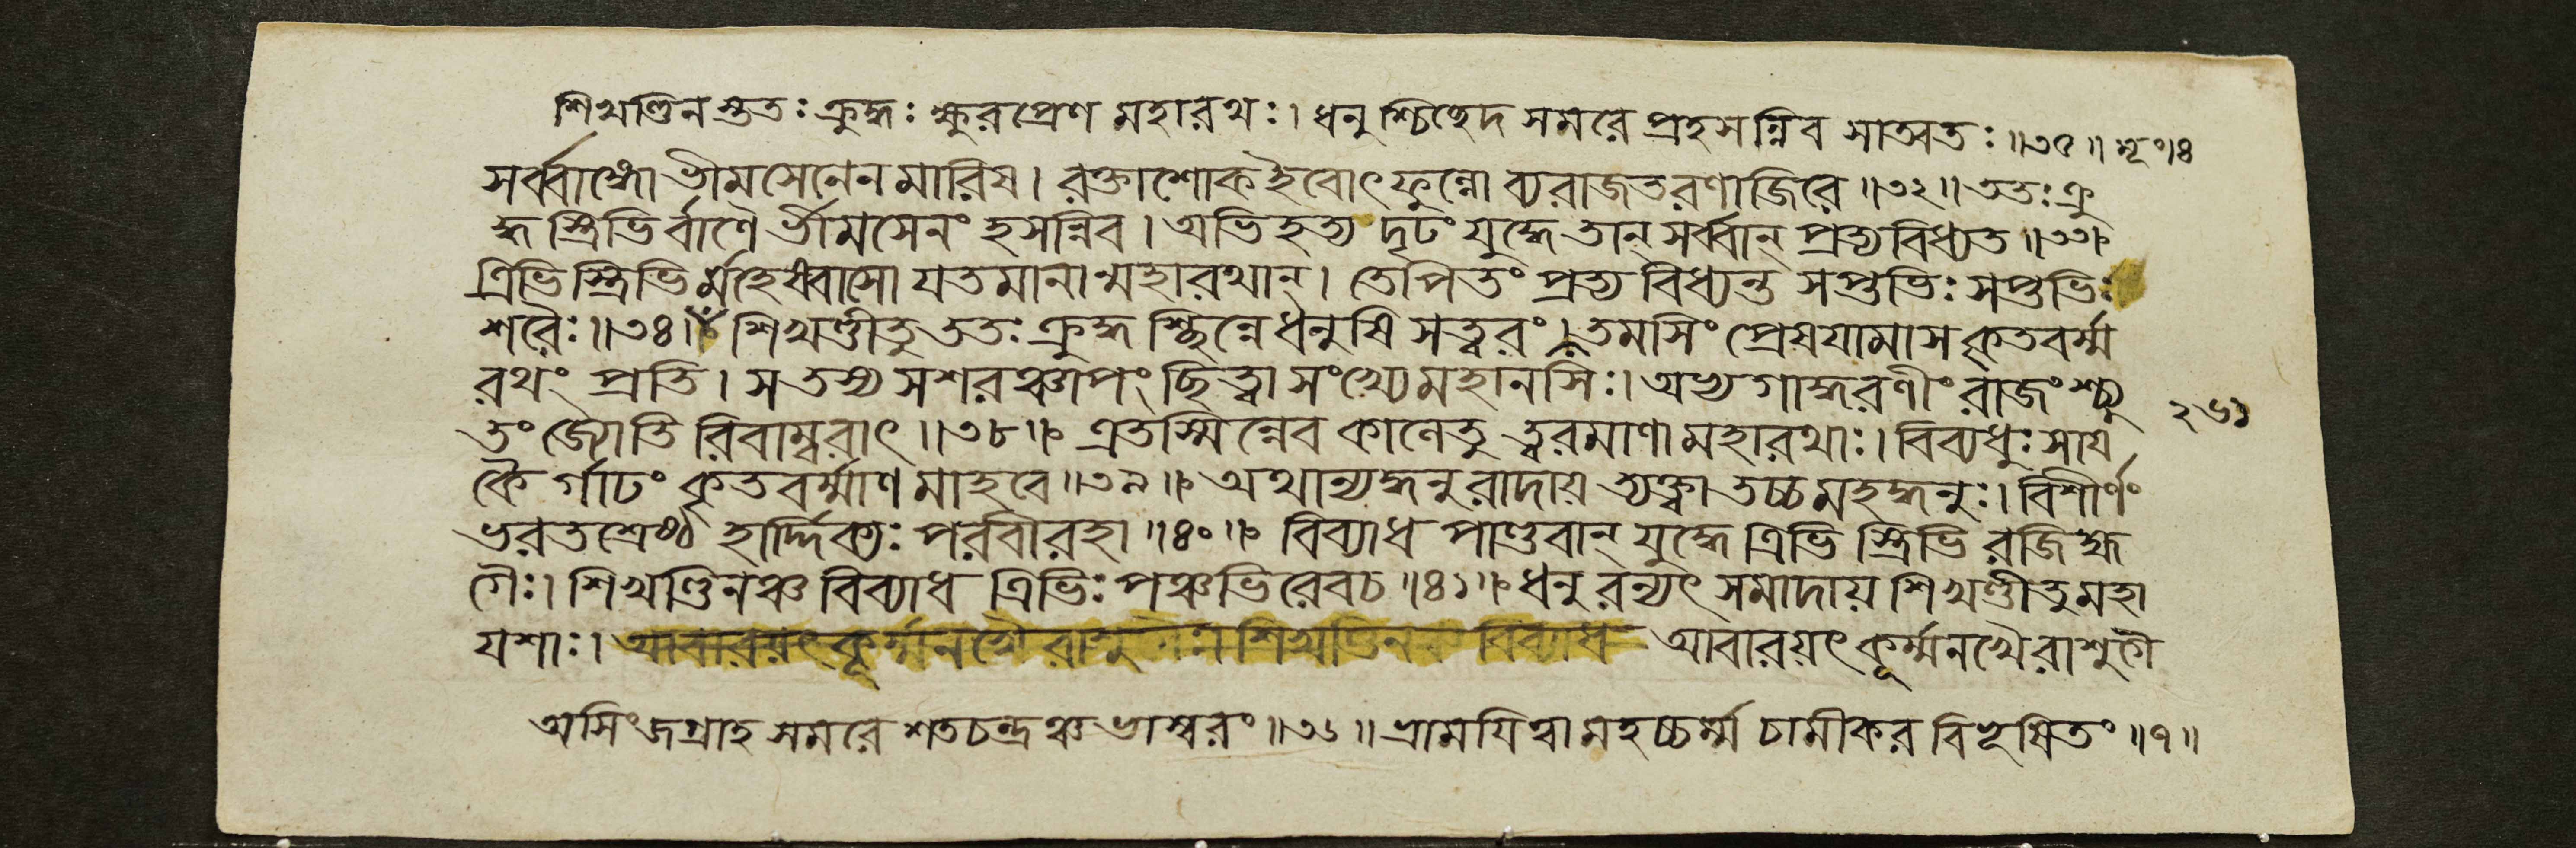 শিখণ্ডিনস্ততঃ ক্রুদ্ধঃ ক্ষুরপ্রেণ মহারথঃ। ধনুশ্চিচ্ছেদ সমরে প্রহসন্নিব সাত্বতঃ॥৩৫॥
সর্ব্বাঙ্গো ভীমসেনেন মারিষ। রক্তাশোক ইবোৎফুল্লো ব্যরাজত রণাজিরে॥৩২॥ ততঃ ক্রু
দ্ধ স্ত্রিভির্বাণৈ র্ভীমসেনং হসন্নিব। অভিহত্য দৃঢং যুদ্ধে তান্ সর্ব্বান্ প্রত্যবিধ্যত॥৩৩॥
ত্রিভিস্ত্রিভির্মহেষ্বাসো যতমানান্মহারথান্। তেপি তং প্রত্যবিধ্যন্ত সপ্তভিঃ সপ্তভিঃ
শরৈঃ॥৩৪॥ শিখণ্ডীতু ততঃ ক্রুদ্ধ শ্ছিন্নে ধনুষি সত্বরং। তমসিং প্রেষযামাস কৃতবর্ম্ম
রথং প্রতি। স তস্য সশরঞ্চাপং ছিত্ত্বা সংখ্যে মহানসিঃ। অভ্যগাদ্ধরণীং রাজংশ্চ্যু
তং জ্যোতিরিবাম্বরাৎ॥৩৮॥ এতস্মিন্নেব কালেতু ত্বরমাণা মহারথাঃ। বিব্যধুঃ সায
কৈ র্গাঢং কৃতবর্ম্মাণমাহবে॥৩৯॥ অথান্যদ্ধনুরাদায় ত্যক্ত্বা তচ্চ মহদ্ধনুঃ। বিশীর্ণং
ভরতশ্রেষ্ঠ হার্দ্দিক্যঃ পরবীরহা॥৪০॥ বিব্যাধ পাণ্ডবান্ যুদ্ধে ত্রিভিস্ত্রিভিরজিহ্ম
গৈঃ। শিখণ্ডিনঞ্চ বিব্যাধ ত্রিভিঃ পঞ্চভিরেবচ॥৪১॥ ধনুরন্যৎ সমাদায় শিখণ্ডীতু মহা
যশাঃ। আবারয়ৎ কূর্ম্মনখৈরাশু শিখণ্ডিনঞ্চ বিব্যাধ আবারয়ৎ কূর্ম্মনখৈরাশুগৈ
অসিং জগ্রাহ সমরে শতচন্দ্রঞ্চ ভাস্বরং॥৩৬॥ ভ্রাময়িত্বা মহচ্চর্ম্ম চামীকরবিভূষিতং॥৭॥
২৬১